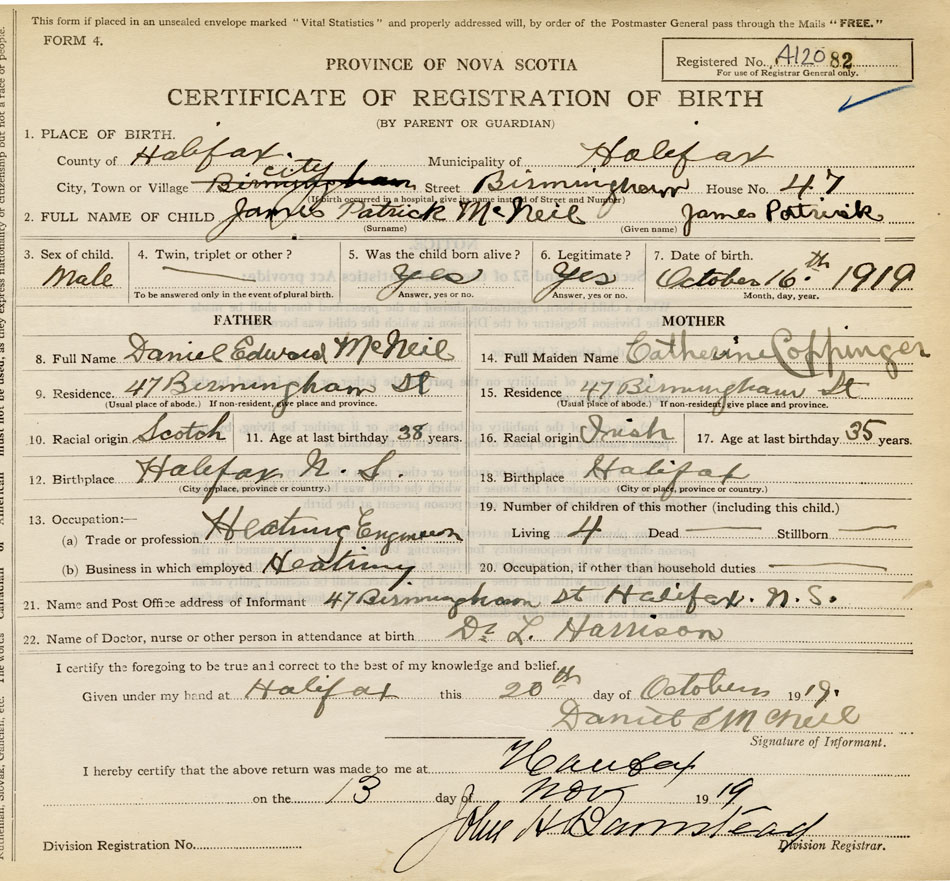 This form if placed in an unsealed envelope marked "Vital Statistics" and properly addressed will, by order of the Postmaster General pass through the Mails "FREE."
FORM 4.
Registered No. A120 82
For use of Registrar General only.
PROVINCE OF NOVA SCOTIA
CERTIFICATE OF REGISTRATION OF BIRTH
(BY PARENT OR GUARDIAN)
1. PLACE OF BIRTH.
County of Halifax. Municipality of Halifax
City, Town or Village Birmingham city Street Birmingham House No. 47
(If birth occurred in a hospital, give its name instead of Street and Number)
2. FULL NAME OF CHILD James Patrick McNeil James Patrick
(Surname) (Given name)
3. Sex of child. 4. Twin, triplet or other? 5. Was the child born alive? 6. Legitimate? 7. Date of birth.
Male yes Yes October 16th 1919
To be answered only in the event of plural birth. Answer, yes or no. Answer, yes or no. Month, day, year.
FATHER MOTHER
8. Full Name Daniel Edward McNeil 14. Full Maiden Name Catherine Coppinger
9. Residence. 47 Birmingham St 15. Residence 47 Birmingham St
(Usual place of abode.) If non-resident, give place and province. (Usual place of abode.) If non-resident, give place and province.
10. Racial origin Scotch 11. Age at last birthday 38 years. 16. Racial origin Irish 17. Age at last birthday 35 years.
12. Birthplace Halifax N. S. 18. Birthplace Halifax
(City or place, province or country.) (City or place, province or country.)
13. Occupation:— 19. Number of children of this mother (including this child.)
(a) Trade or profession Heating Engineer Living 4 Dead Stillborn
(b) Business in which employed Heating 20. Occupation, if other than household duties
21. Name and Post Office address of Informant 47 Birmingham St Halifax. N. S.
22. Name of Doctor, nurse or other person in attendance at birth Dr L. Harrison
I certify the foregoing to be true and correct to the best of my knowledge and belief.
Given under my hand at Halifax this 20th day of October 1919.
Daniel E McNeil
Signature of Informant.
I hereby certify that the above return was made to me at Halifax
on the 13 day of Nov 1919
John H Barnstead
Division Registration No. Division Registrar.